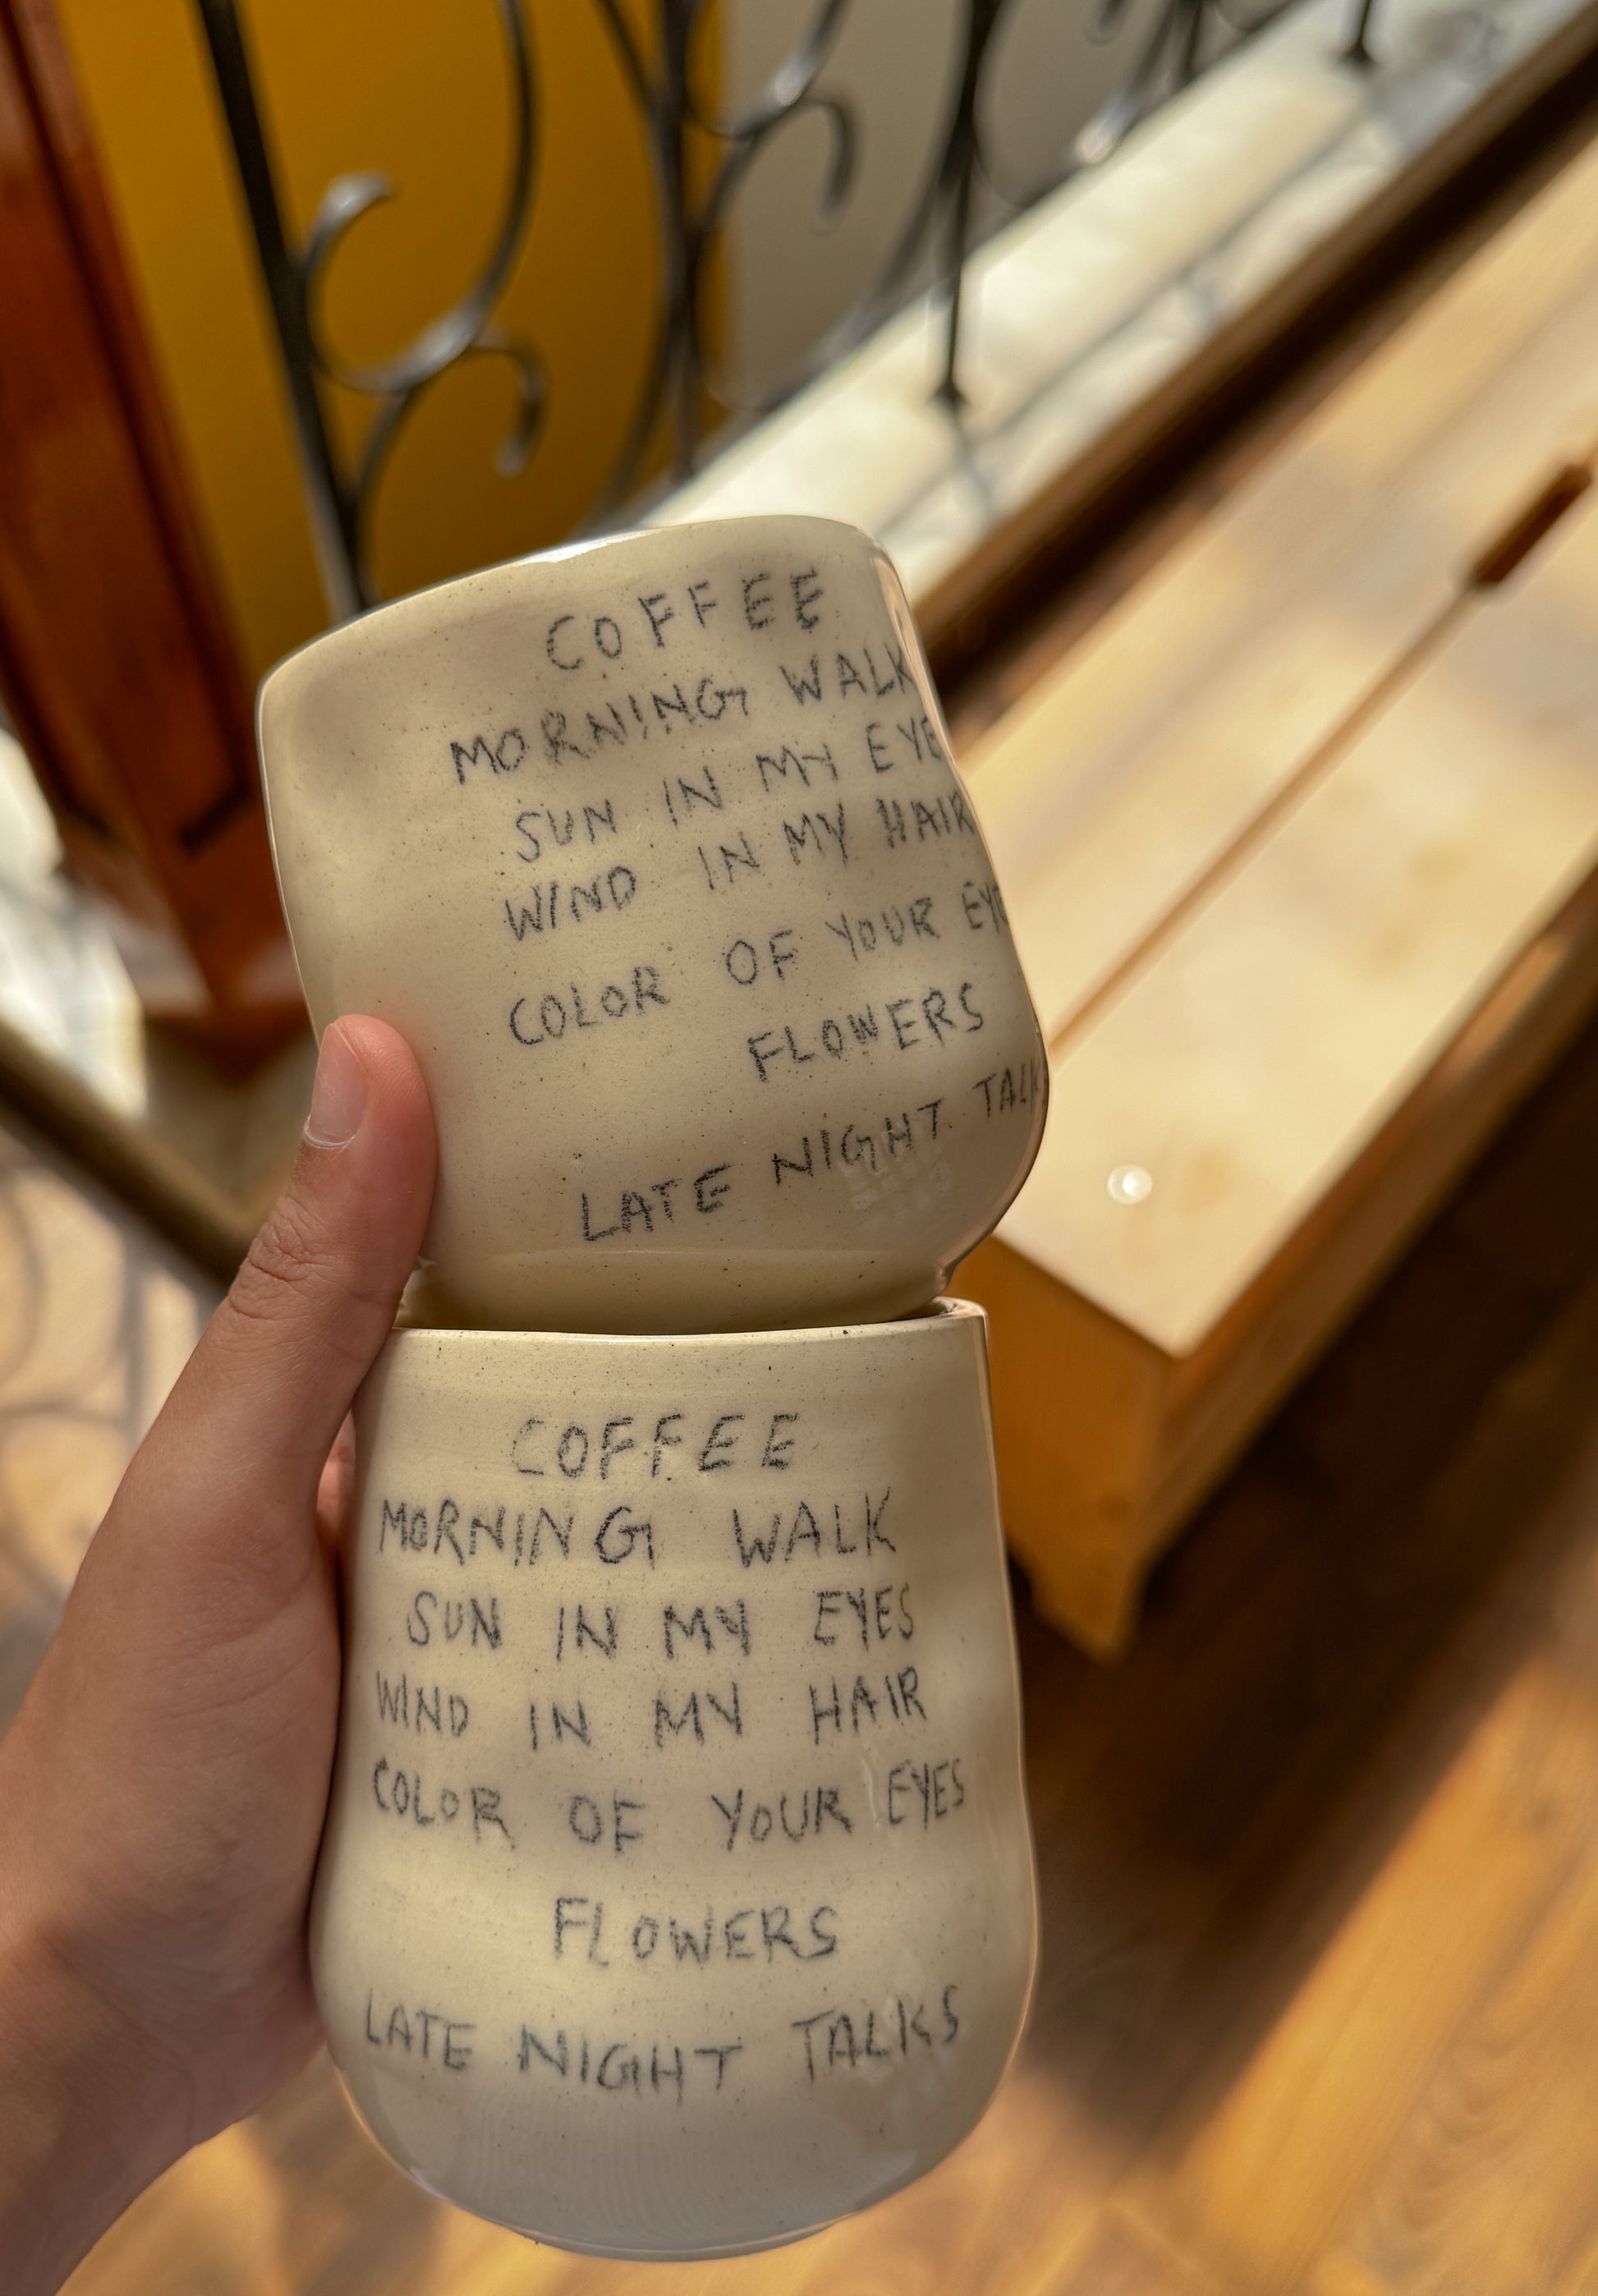 COFFEE
MORNING WALK
SUN IN MY EYE
WIND IN MY HAIR
COLOR OF YOUR EYE
FLOWERS
LATE NIGHT TALK
COFFEE
MORNING WALK
SUN IN MY EYES
WIND IN MY HAIR
COLOR OF YOUR EYES
FLOWERS
LATE NIGHT TALKS